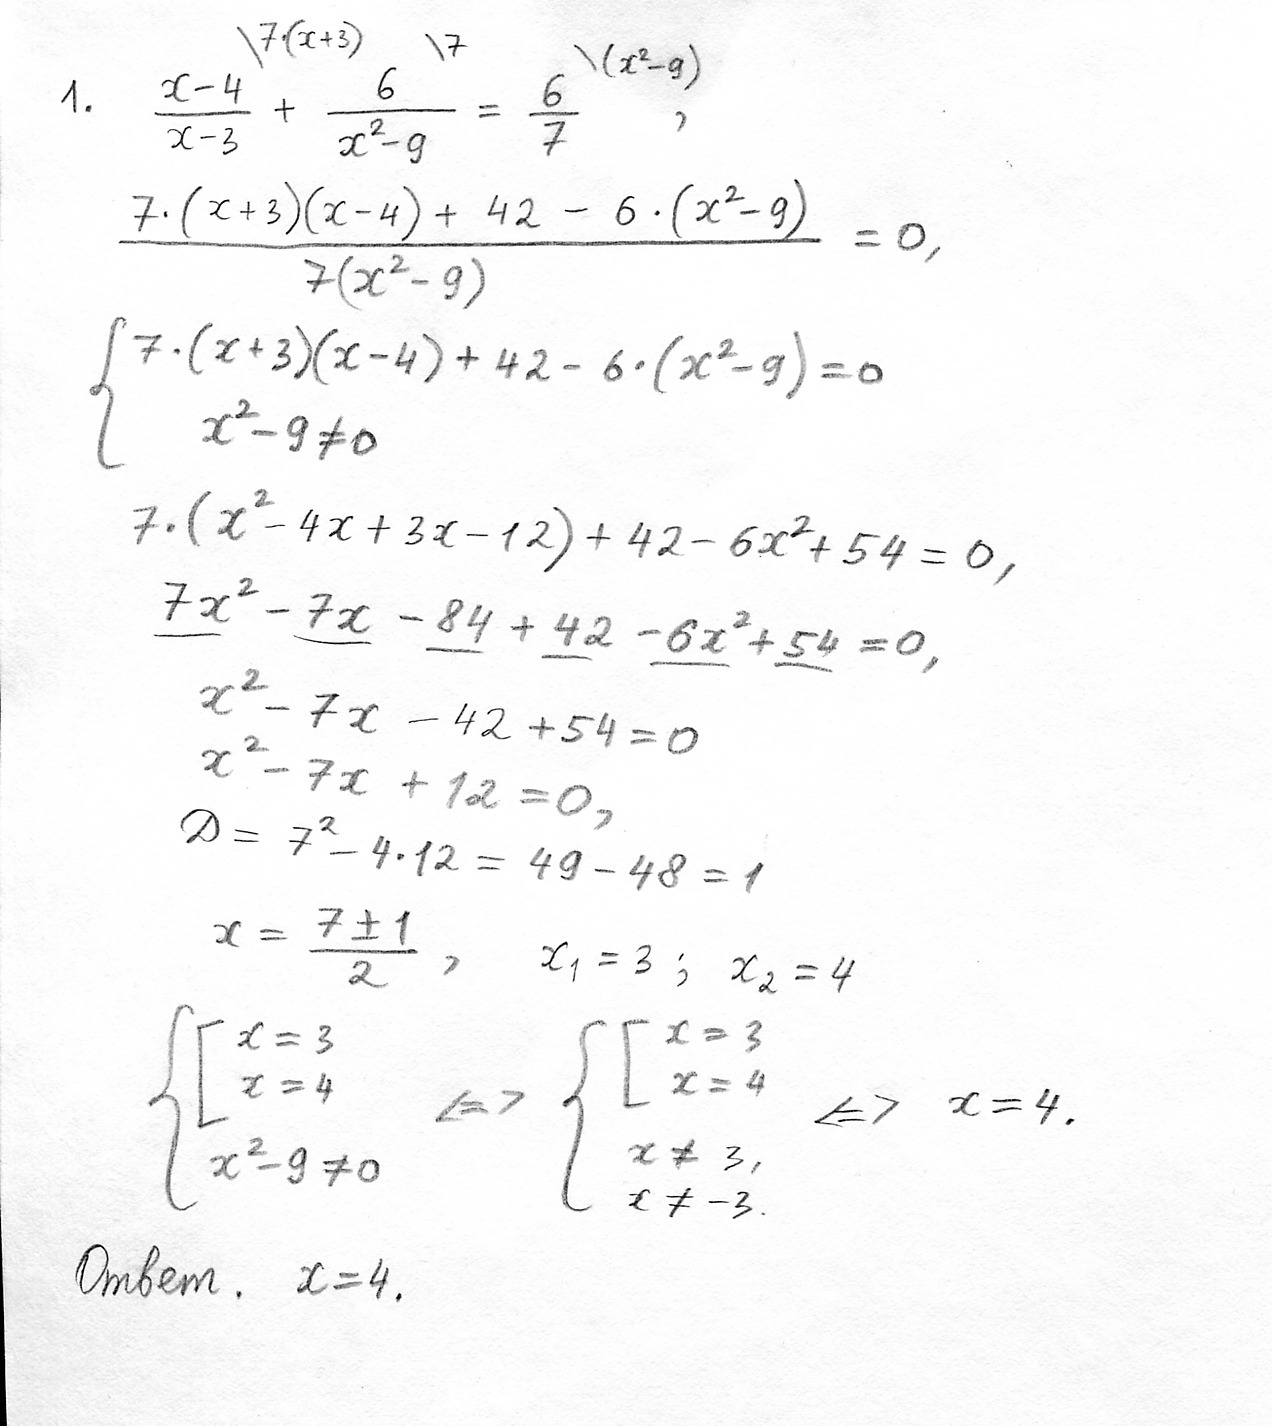 \7·(x+3) \7 \(x²-9)
1. (x-4)/(x-3) + 6/(x²-9) = 6/7,
(7·(x+3)(x-4) + 42 - 6·(x²-9))/(7(x²-9)) = 0,
{ 7·(x+3)(x-4) + 42 - 6·(x²-9) = 0
x²-9≠0
7·(x²-4x+3x-12) + 42 - 6x²+54 = 0,
7x² - 7x - 84 + 42 - 6x² + 54 = 0,
x² - 7x - 42 + 54 = 0
x² - 7x + 12 = 0,
D = 7² - 4·12 = 49 - 48 = 1
x = (7±1)/2, x₁ = 3; x₂ = 4
{ [ x = 3 x = 4 x²-9≠0 <=> { [ x = 3 x = 4 x ≠ 3, x ≠ -3. <=> x = 4.
Ответ. x = 4.